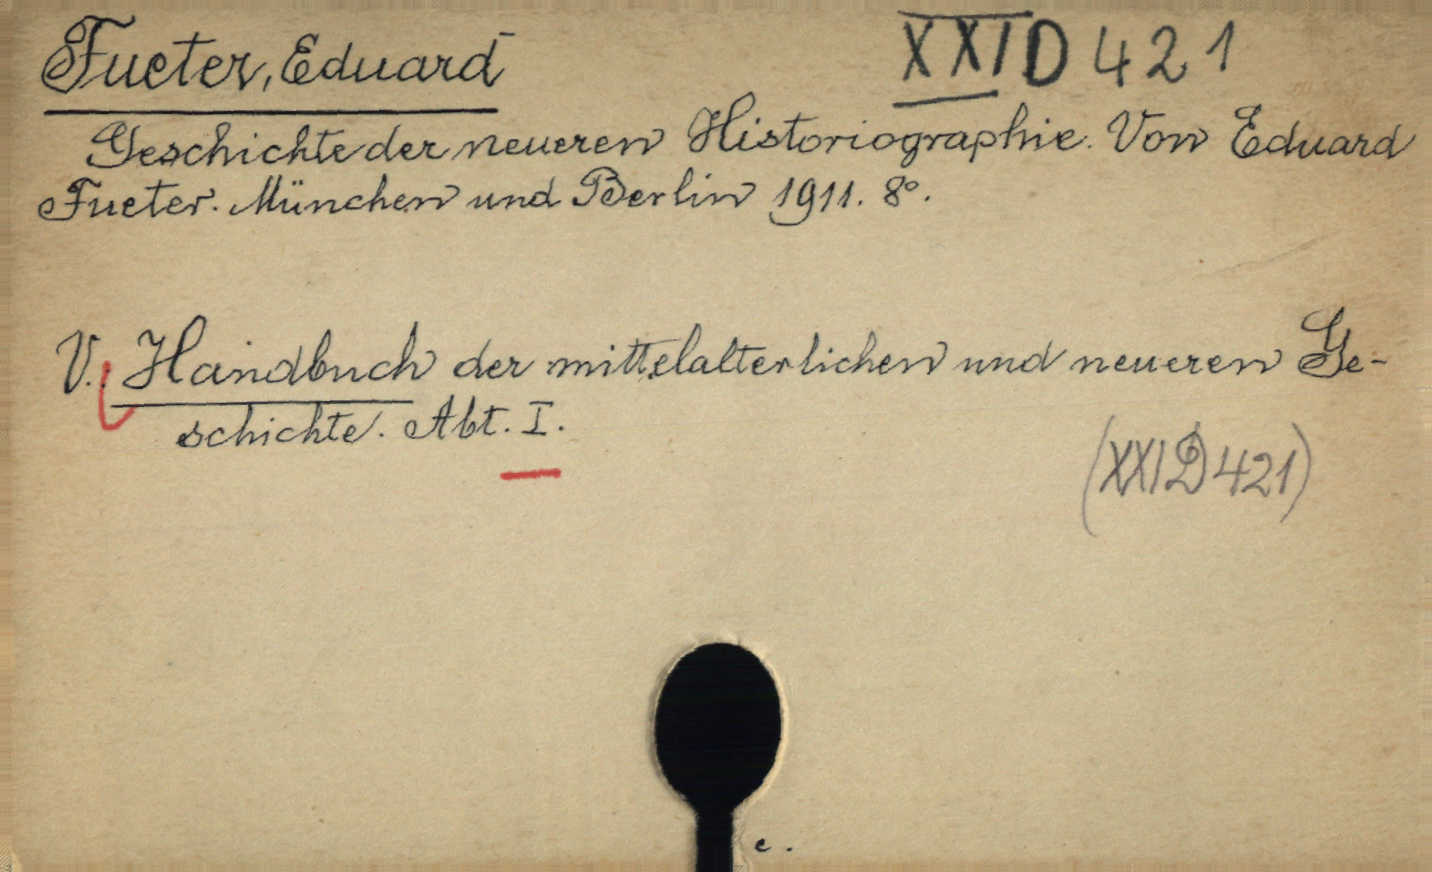 Fueter, Eduard
XXI D 421
Geschichte der neueren Historiographie. Von Eduard
Fueter. München und Berlin 1911. 8°.
V. Handbuch der mittelalterlichen und neueren Ge-
schichte. Abt. I.
(XXI D 421)
c.